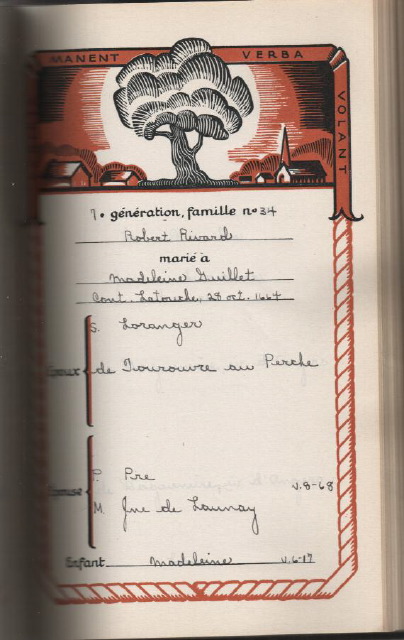 MANENT VERBA VOLANT
7. génération, famille no 34
Robert Rivard
marié à
Madeleine Guillet
Cont. Latouche, 28 oct. 1664
S. Loranger
Époux de Tourouvre au Perche
P. Pre V.8-68
Épouse
M. Jne de Launay
Enfant Madeleine V.6-17